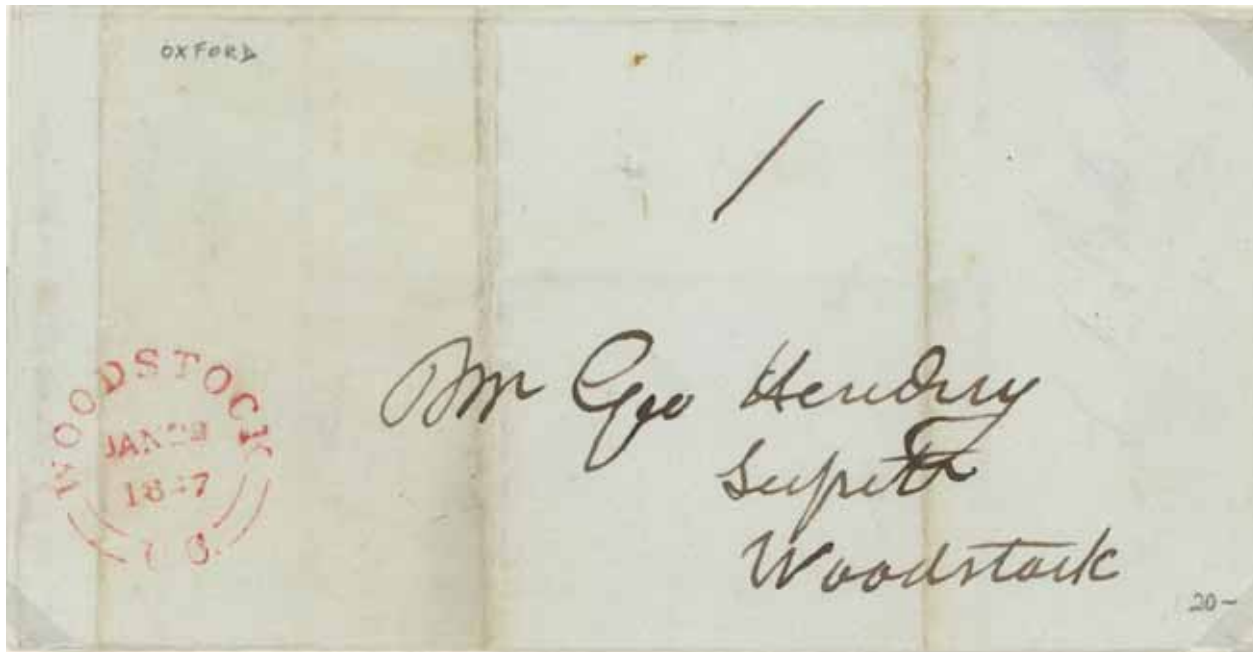 OXFORD
/
WOODSTOCK
JAN
Mr Geo Hendry
Woodstock
20-